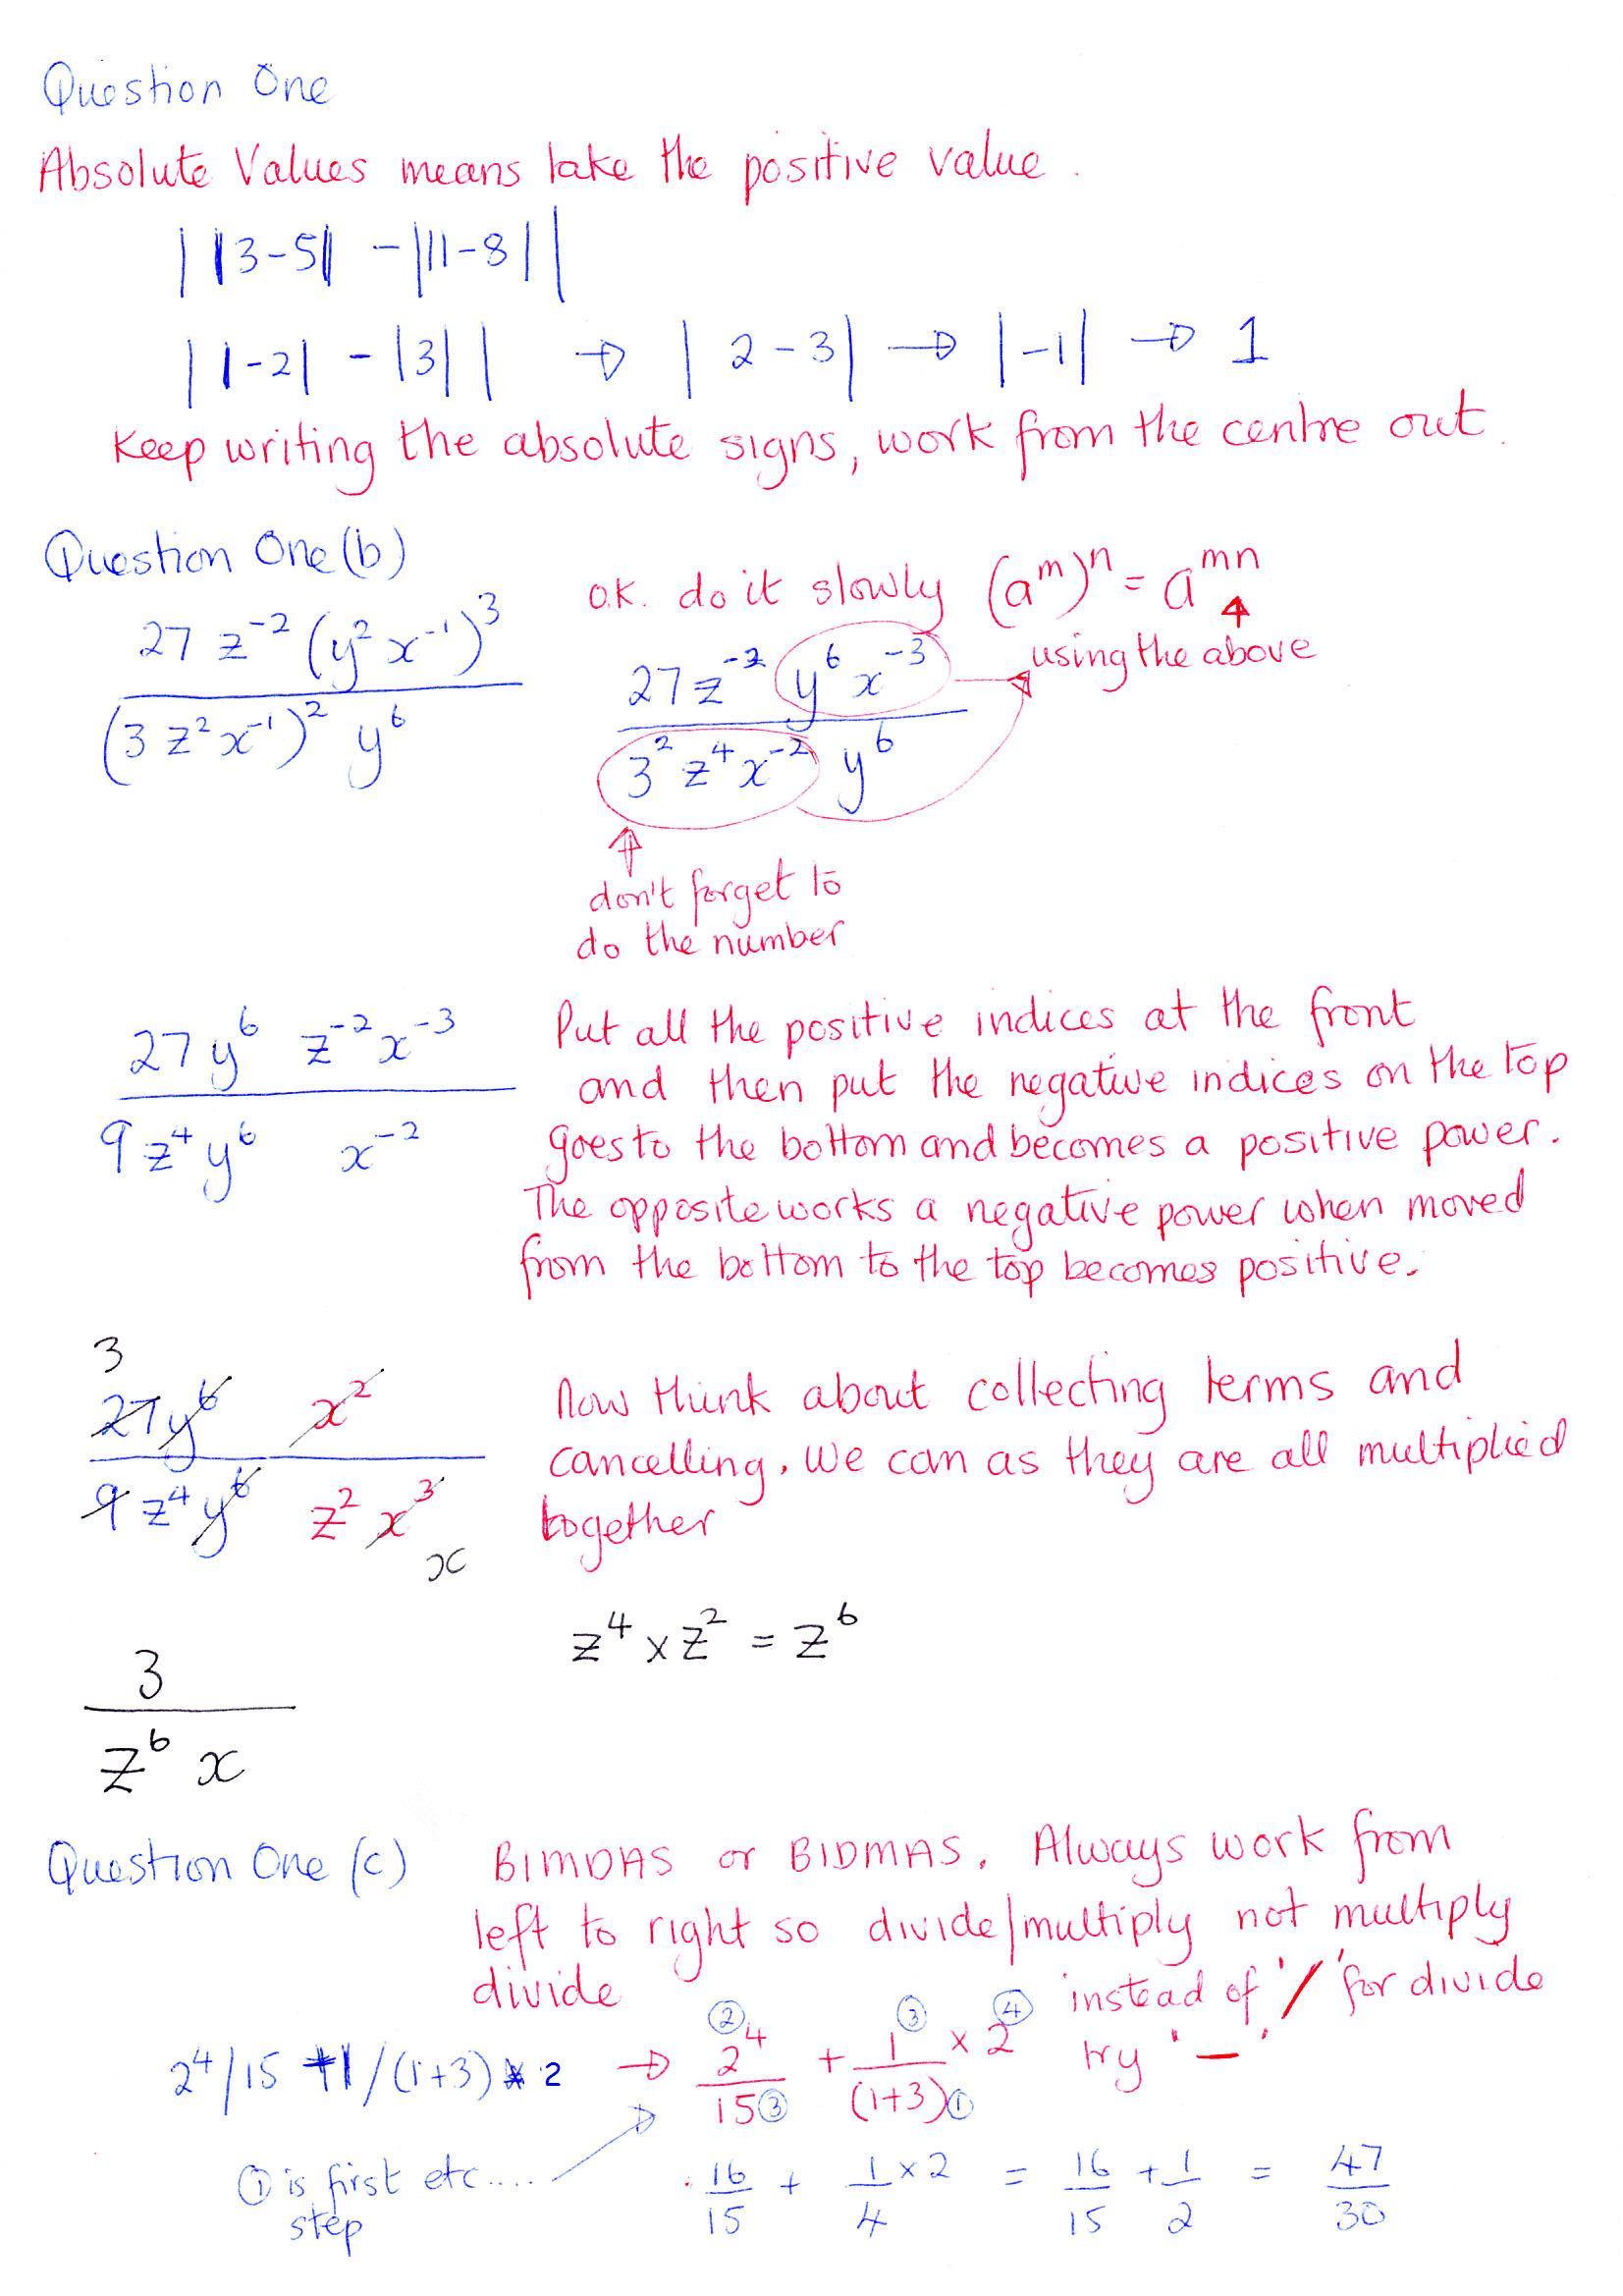 Question One
Absolute Values means take the positive value.
| |3-5| - |11-8| |
| |-2| - |3| | → | 2-3| → |-1| → 1
Keep writing the absolute signs, work from the centre out.
Question One (b)
O.K. do it slowly (a^m)^n = a^mn
using the above
27 z^-2 (y^2 x^-1)^3
(3 z^2 x^-1)^2 y^6
27 z^-2 y^6 x^-3
3^2 z^4 x^-2 y^6
don't forget to
do the number
27 y^6 z^-2 x^-3
9 z^4 y^6 x^-2
Put all the positive indices at the front
and then put the negative indices on the top
goes to the bottom and becomes a positive power.
The opposite works a negative power when moved
from the bottom to the top becomes positive.
3
27 y^6 x^2
9 z^4 y^6 z^2 x^3
x
Now think about collecting terms and
cancelling. We can as they are all multiplied
together
z^4 x z^2 = z^6
3
z^6 x
Question One (c)
BIMDAS or BIDMAS. Always work from
left to right so divide/multiply not multiply
divide
instead of '/' for divide
try '—'
2^4/15 +1/(1+3) * 2 → 2^4 ② + 1 ③ x 2 ④
15 ③ (1+3) ①
① is first etc....
step
16/15 + 1/4 x 2 = 16/15 + 1/2 = 47/30